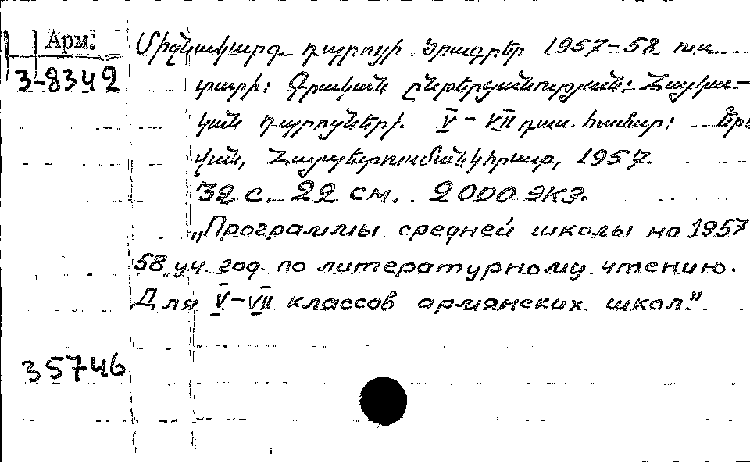 Арм.
3-8342
Միջնակարգ դպրոցի ծրագրեր 1957-58 ուս.
տարի: Գրական ընթերցանություն: Հայկա-
կան դպրոցների V-VII դաս. համար: Երև
վան, Հայպետուսմանկհրատ, 1957.
32 с. 22 см. 2000 экз.
„Программы средней школы на 1957
58 уч. год по литературному чтению.
Для V-VII классов армянских школ."
35746